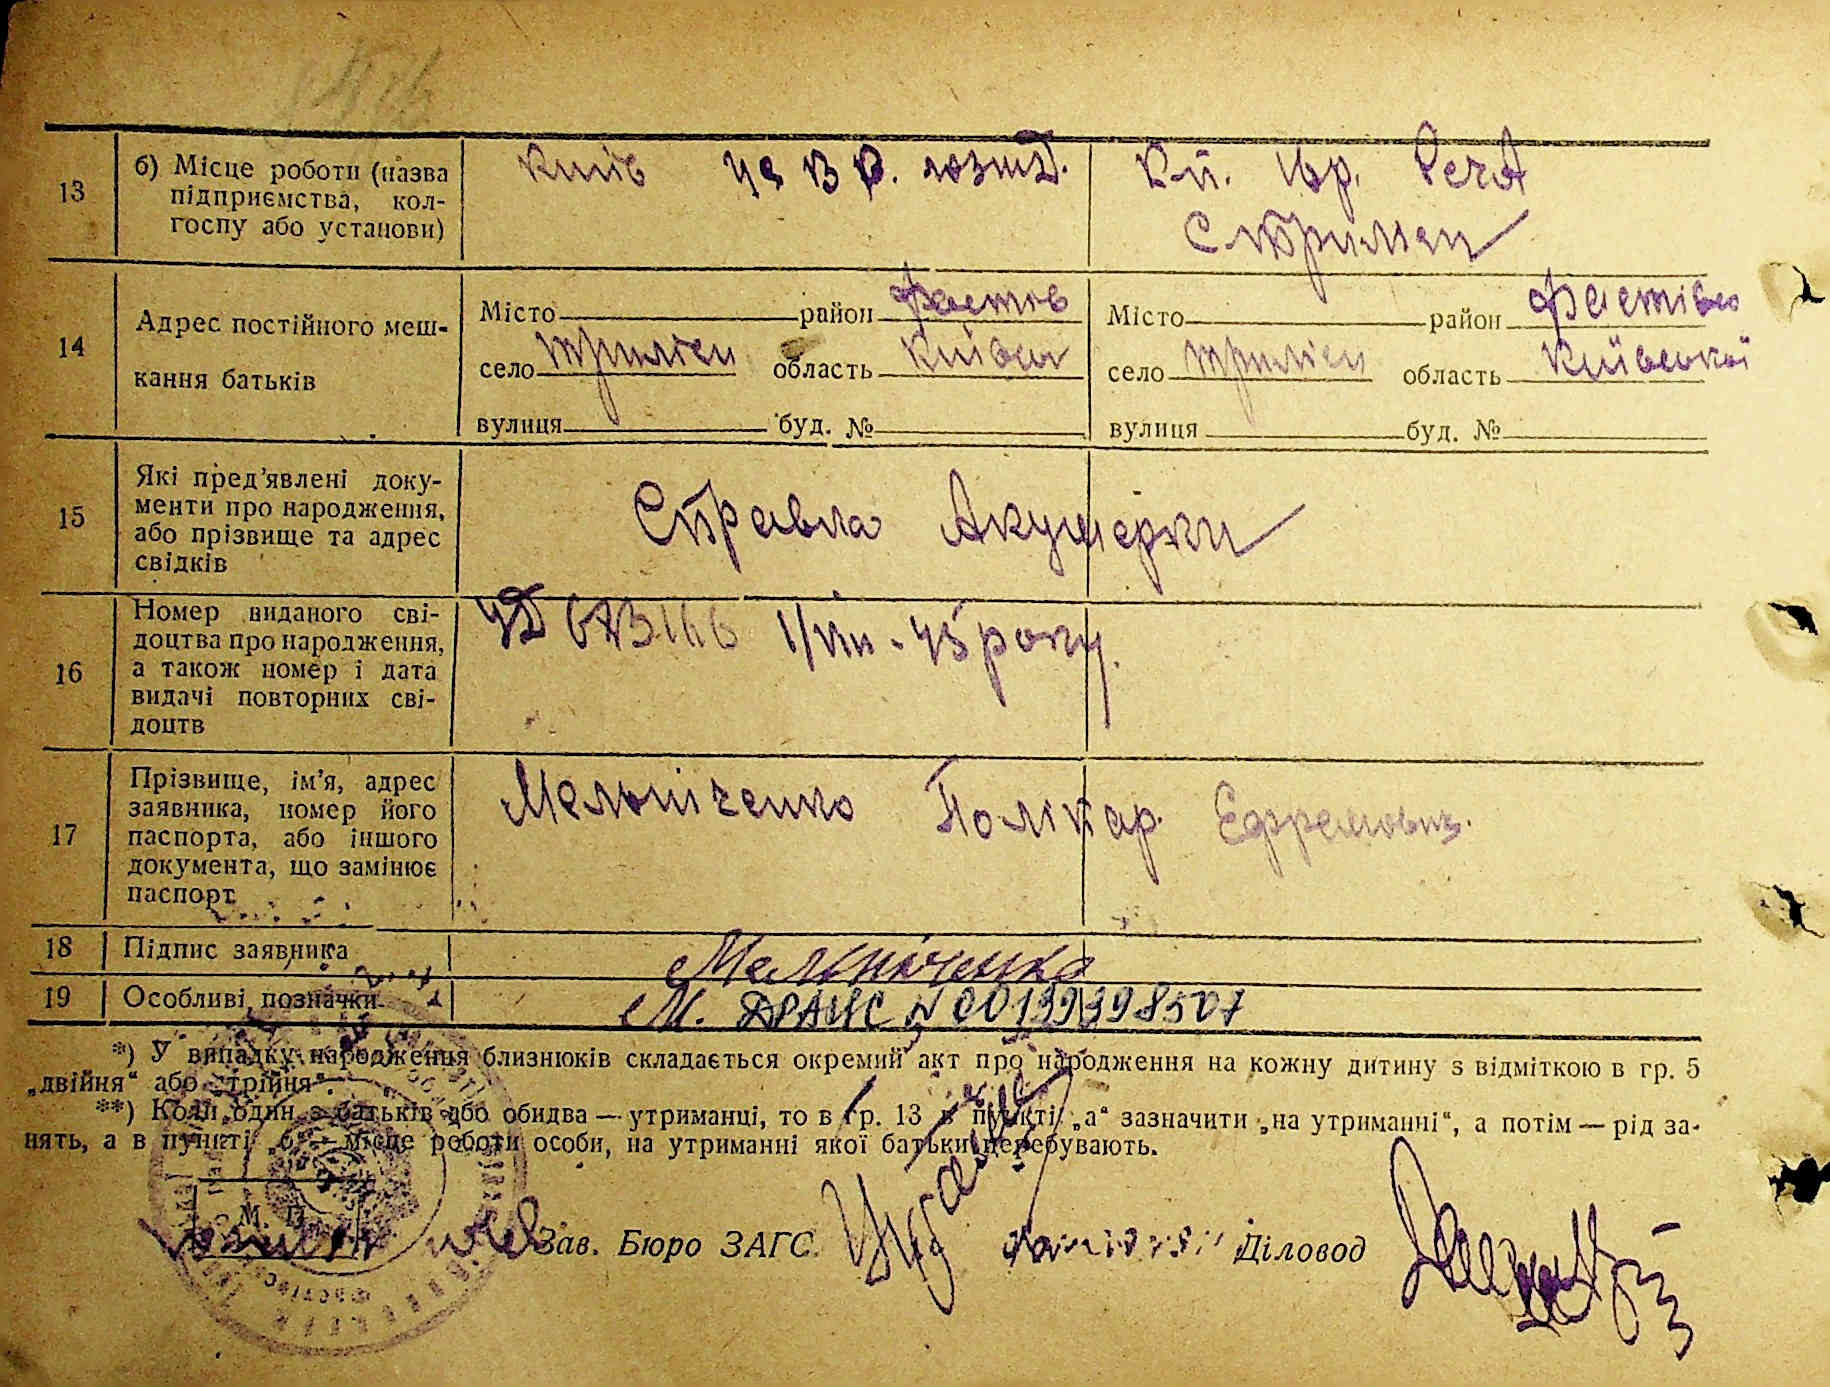 13
б) Місце роботи (назва
підприємства, кол-
госпу або установи)
Київ
Кл.
14
Адрес постійного меш-
кання батьків
Місто район Фастов
село Триліси область Київськ
вулиця буд. №
Місто район Фастівсь
село Триліси область Київської
вулиця буд. №
15
Які пред’явлені доку-
менти про народження,
або прізвище та адрес
свідків
Справка Акушерки
16
Номер виданого сві-
доцтва про народження,
а також номер і дата
видачі повторних сві-
доцтв
1/VIII - 45 року.
17
Прізвище, ім’я, адрес
заявника, номер його
паспорта, або іншого
документа, що замінює
паспорт
Мельніченко Полікар. Ефремович.
18 Підпис заявника
Мельніченко
19 Особливі позначки
М. ДРАЦС N 00139398507
*) У випадку народження близнюків складається окремий акт про народження на кожну дитину з відміткою в гр. 5
„двійня“ або „трійня“.
**) Коли один з батьків або обидва — утриманці, то в гр. 13 в пункті „а“ зазначити „на утриманні“, а потім — рід за-
нять, а в пункті „б“ — місце роботи особи, на утриманні якої батьки перебувають.
М. П.
Зав. Бюро ЗАГС Діловод